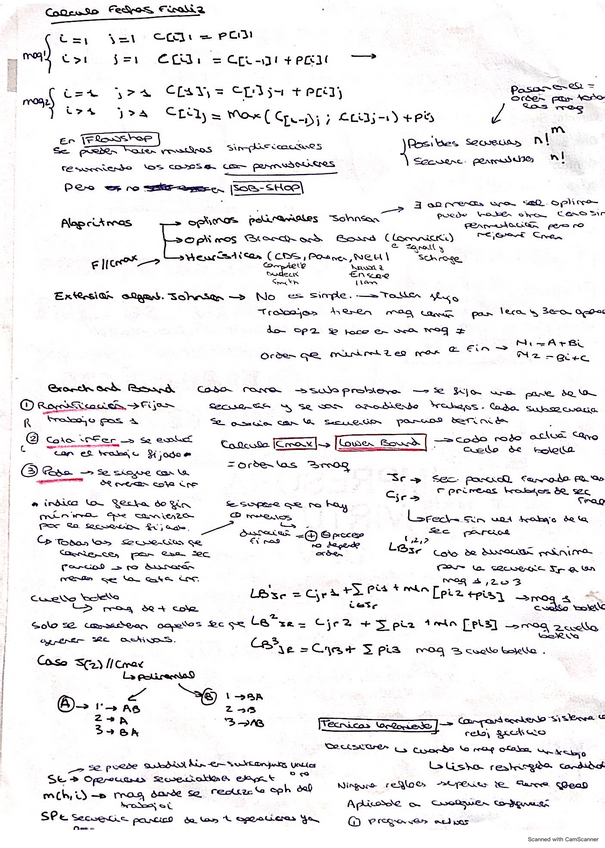 Calculo Fechas Finaliz
maq1 { i=1 j=1 C[i]1 = P[i]1
i>1 j=1 C[i]1 = C[i-1]1 + P[i]1 →
maq2 { i=1 j>1 C[1]j = C[1]j-1 + P[i]j
i>1 j>1 C[i]j = Max(C[i-1]j; C[i]j-1) + Pij
Pasan en el =
orden por todas
las maq
Posibles secuencias n!^m
Secuenc. permutadas n!
En Flowshop
se pueden hacer muchas simplificaciones
resumiendo los casos a con permutaciones
pero en JOB-SHOP
Algoritmos → optimos polinomiales Johnson → ∃ al menos una sol optima
puede haber otra
permutación pero no
mejorará Cmax
→ Optimos Branch and Bound (Lomnicki)
F//Cmax → Heurísticas (CDS, Palmer, NEH)
Campbell
Dudeck
Smith
Nawaz
Enscore
Ham
Extensión algorit. Johnson → No es simple. → Taller flujo
Trabajos tienen maq común par 1era y 3era opera
da op2 se hace en una maq ≠
Orden que minimiza el max C fin → M1 = A+Bi
M2 = Bi+C
Branch and Bound cada rama → subproblema → se fija una parte de la
① Ramificación → Fijar secuencia y se van anadiendo trabajos. Cada subsecuencia
trabajo pos 1 se asocia con la secuencia parcial definida
② Cota infer → se evalua Calculo Cmax → Lower Bound → cada nodo actúa como
con el trabajo fijado cuello de botella
③ Poda → se sigue con la = orden las 3 maq
de menor cota inf Jr → sec parcial formada por los
Cjr → r primeras trabajos de sec
• indica la fecha de fin
mínima que comienza
por la secuencia fijada.
↳ Todas las secuencias que
comiencen por esa sec
parcial → no durarán
menos que la cota inf.
se supone que no hay
t muertos
↳ duración final = ⊕ t proceso
no depende
orden
↳ Fecha fin ult trabajo de la
sec parcial
LBJr 1,2,3 cota de duración mínima
para la secuencia Jr en las
maq 1, 2 o 3
cuello botella
↳ maq de + cota
solo se consideran aquellos sec que
generen sec activas.
LB¹Jr = Cjr1 + Σ pi1 + min [pi2+pi3] → maq 1
i∉Jr cuello botella
LB²Jr = Cjr2 + Σ pi2 + min [pi3] → maq 2 cuello
botella
LB³Jr = Cjr3 + Σ pi3 maq 3 cuello botella.
Caso J(2)//Cmax
↳ polinomial
Ⓐ → 1 → AB
2 → A
3 → BA
Ⓑ 1 → BA
2 → B
3 → AB
Tecnicas lanzamiento → Comportamiento sistema con
reloj ficticio
Decisiones ↳ cuando la maq acaba un trabajo
↳ lista restringida candidatos
→ se puede subdividir en subconjuntos
St → Operaciones secuenciables en etapa t
m(h,i) → maq donde se realiza la op h del
trabajo i
SPt secuencia parcial de las t operaciones ya
Ninguna reglas superior de forma global
Aplicable a cualquier configuración
① programas activos
Scanned with CamScanner